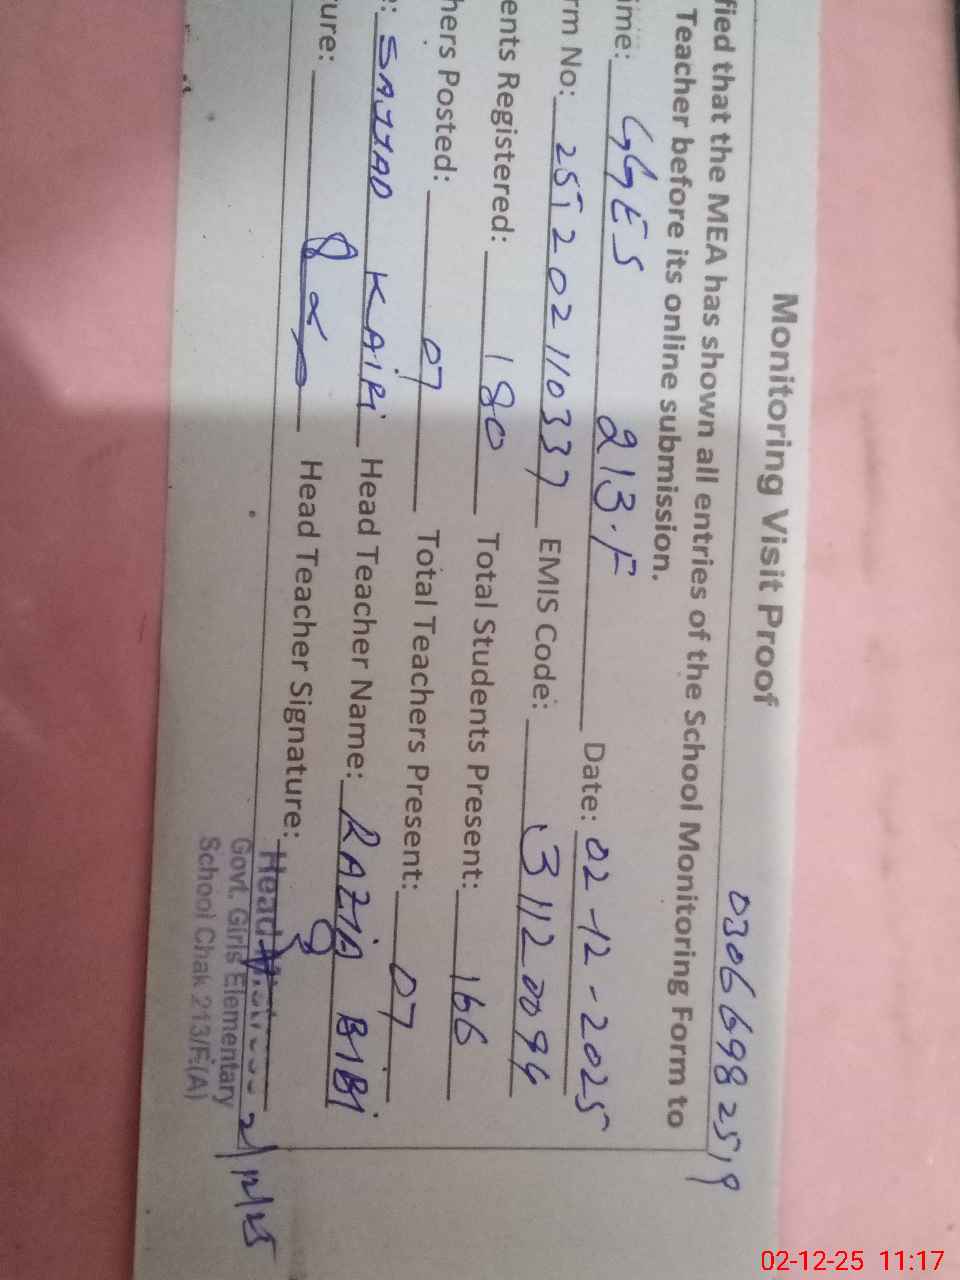 Monitoring Visit Proof
0306 698 2519
fied that the MEA has shown all entries of the School Monitoring Form to
Teacher before its online submission.
ime: GGES 213.F Date: 02-12-2025
rm No: 2512021 10337 EMIS Code: 31120094
ents Registered: 180 Total Students Present: 166
hers Posted: 07 Total Teachers Present: 07
e: SAJJAD KAIRI Head Teacher Name: RAZIA BIBI
ure: Head Teacher Signature:
Head
Govt. Girls Elementary
School Chak 213/F.(A)
2/12/25
02-12-25 11:17